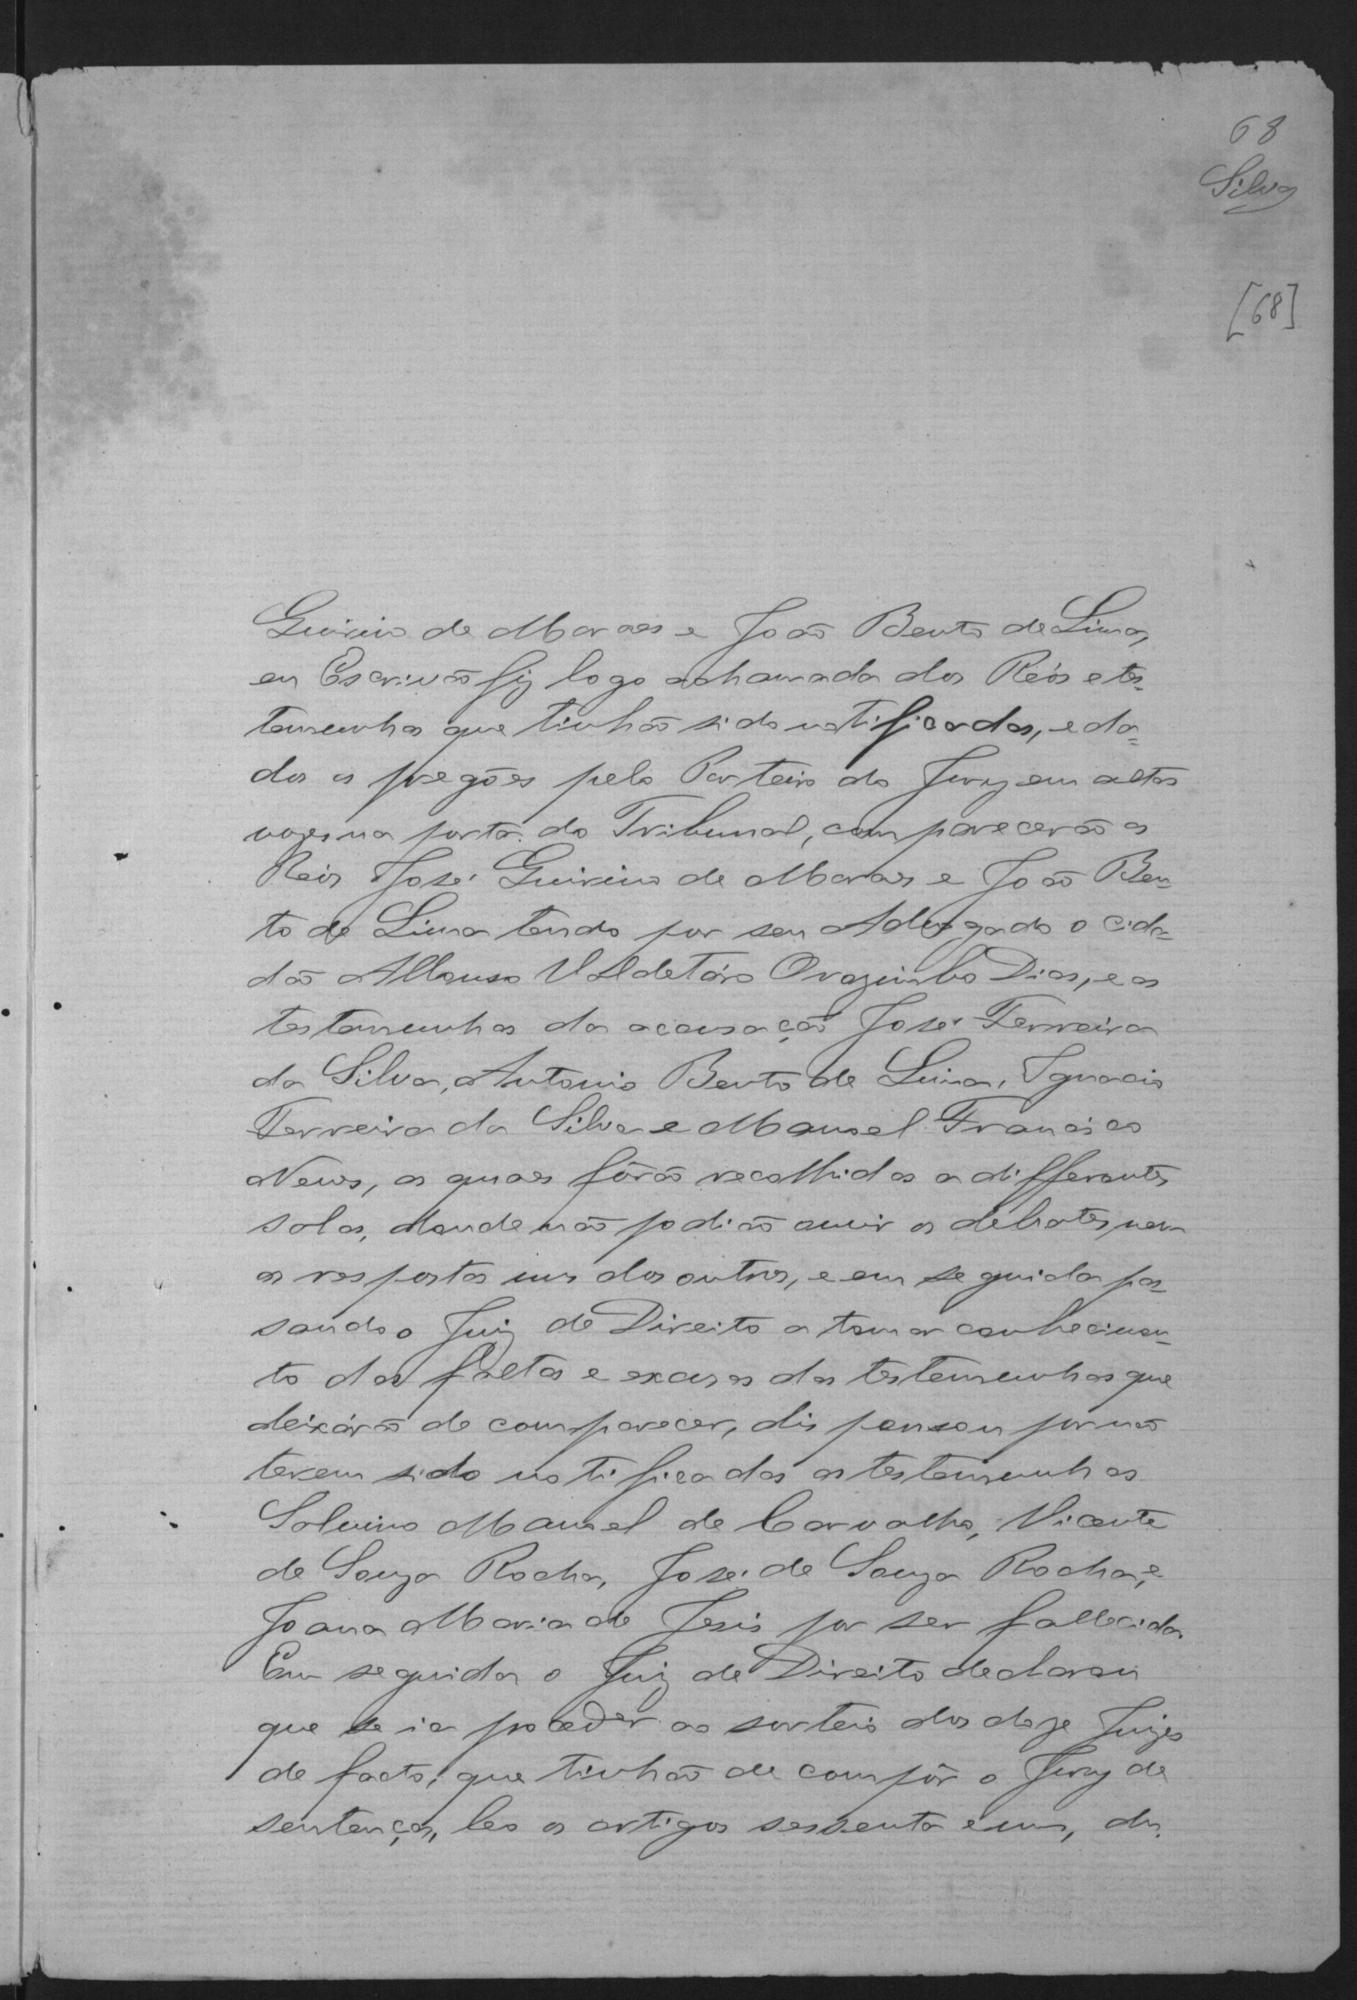 68
Silva
[68]
Guirino de Moraes e João Bento de Lima,
eu Escrivão fiz logo a chamada dos Réos e tes=
temunhas que tinhão sido notificadas, e da=
dos os pregões pelo Porteiro do Jury em altas
vozes na porta do Tribunal, comparecerão os
Réis José Guirino de Moraes e João Ben=
to de Lima tendo por seu Advogado o cida=
dão Affonso Valdetáro Dias, e as
testemunhas da acausação José Ferreira
da Silva, Antonio Bento de Lima, Ignacio
Ferreira da Silva e Manoel Francisco
Neves, as quaes fôrão recolhidas a differentes
salas, donde não podião ouvir os debates nem
as respostas uns dos outros, e em seguida pas=
sando o Juiz de Direito a tomar conhecimen=
to das faltas e excusas das testemunhas que
deixárão de comparecer, dispensou por não
terem sido notificadas as testemunhas
Salvino Manoel de Carvalho, Vicente
de Souza Rocha, José de Souza Rocha, e
Joana Maria de Jesis por ser fallecida.
Em seguida o Juiz de Direito declarou
que se ia proceder ao sorteio dos doze Juizes
de facto, que tinhão de compôr o Jury de
sentença, leo os artigos sessenta e um, du.